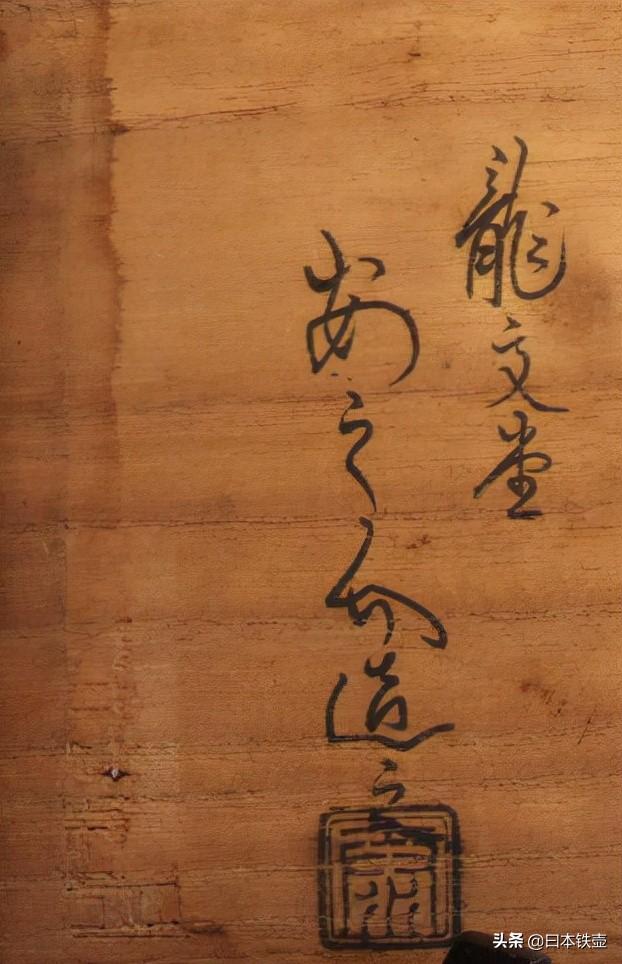 龍文堂
安之介造之
头条 @日本铁壶